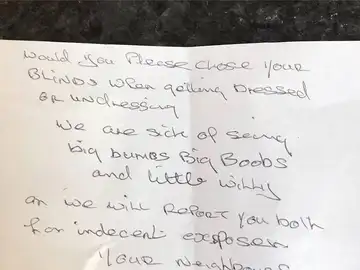 would you Please chose your
BLINDS when getting Dressed
OR undressing
We are sick of seing
big bumbs Big Boobs
and little willy
or we will REPORT you both
for indecent exsposer
Your Neighbours